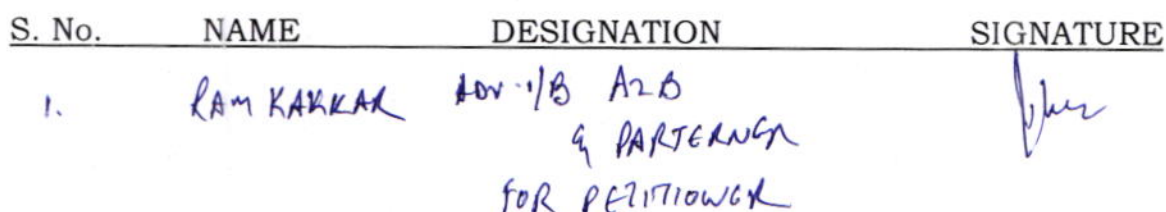 S. No. NAME DESIGNATION SIGNATURE
1. RAM KAKKAR ADV. I/B AZB
& PARTERNER
FOR PETITIONER